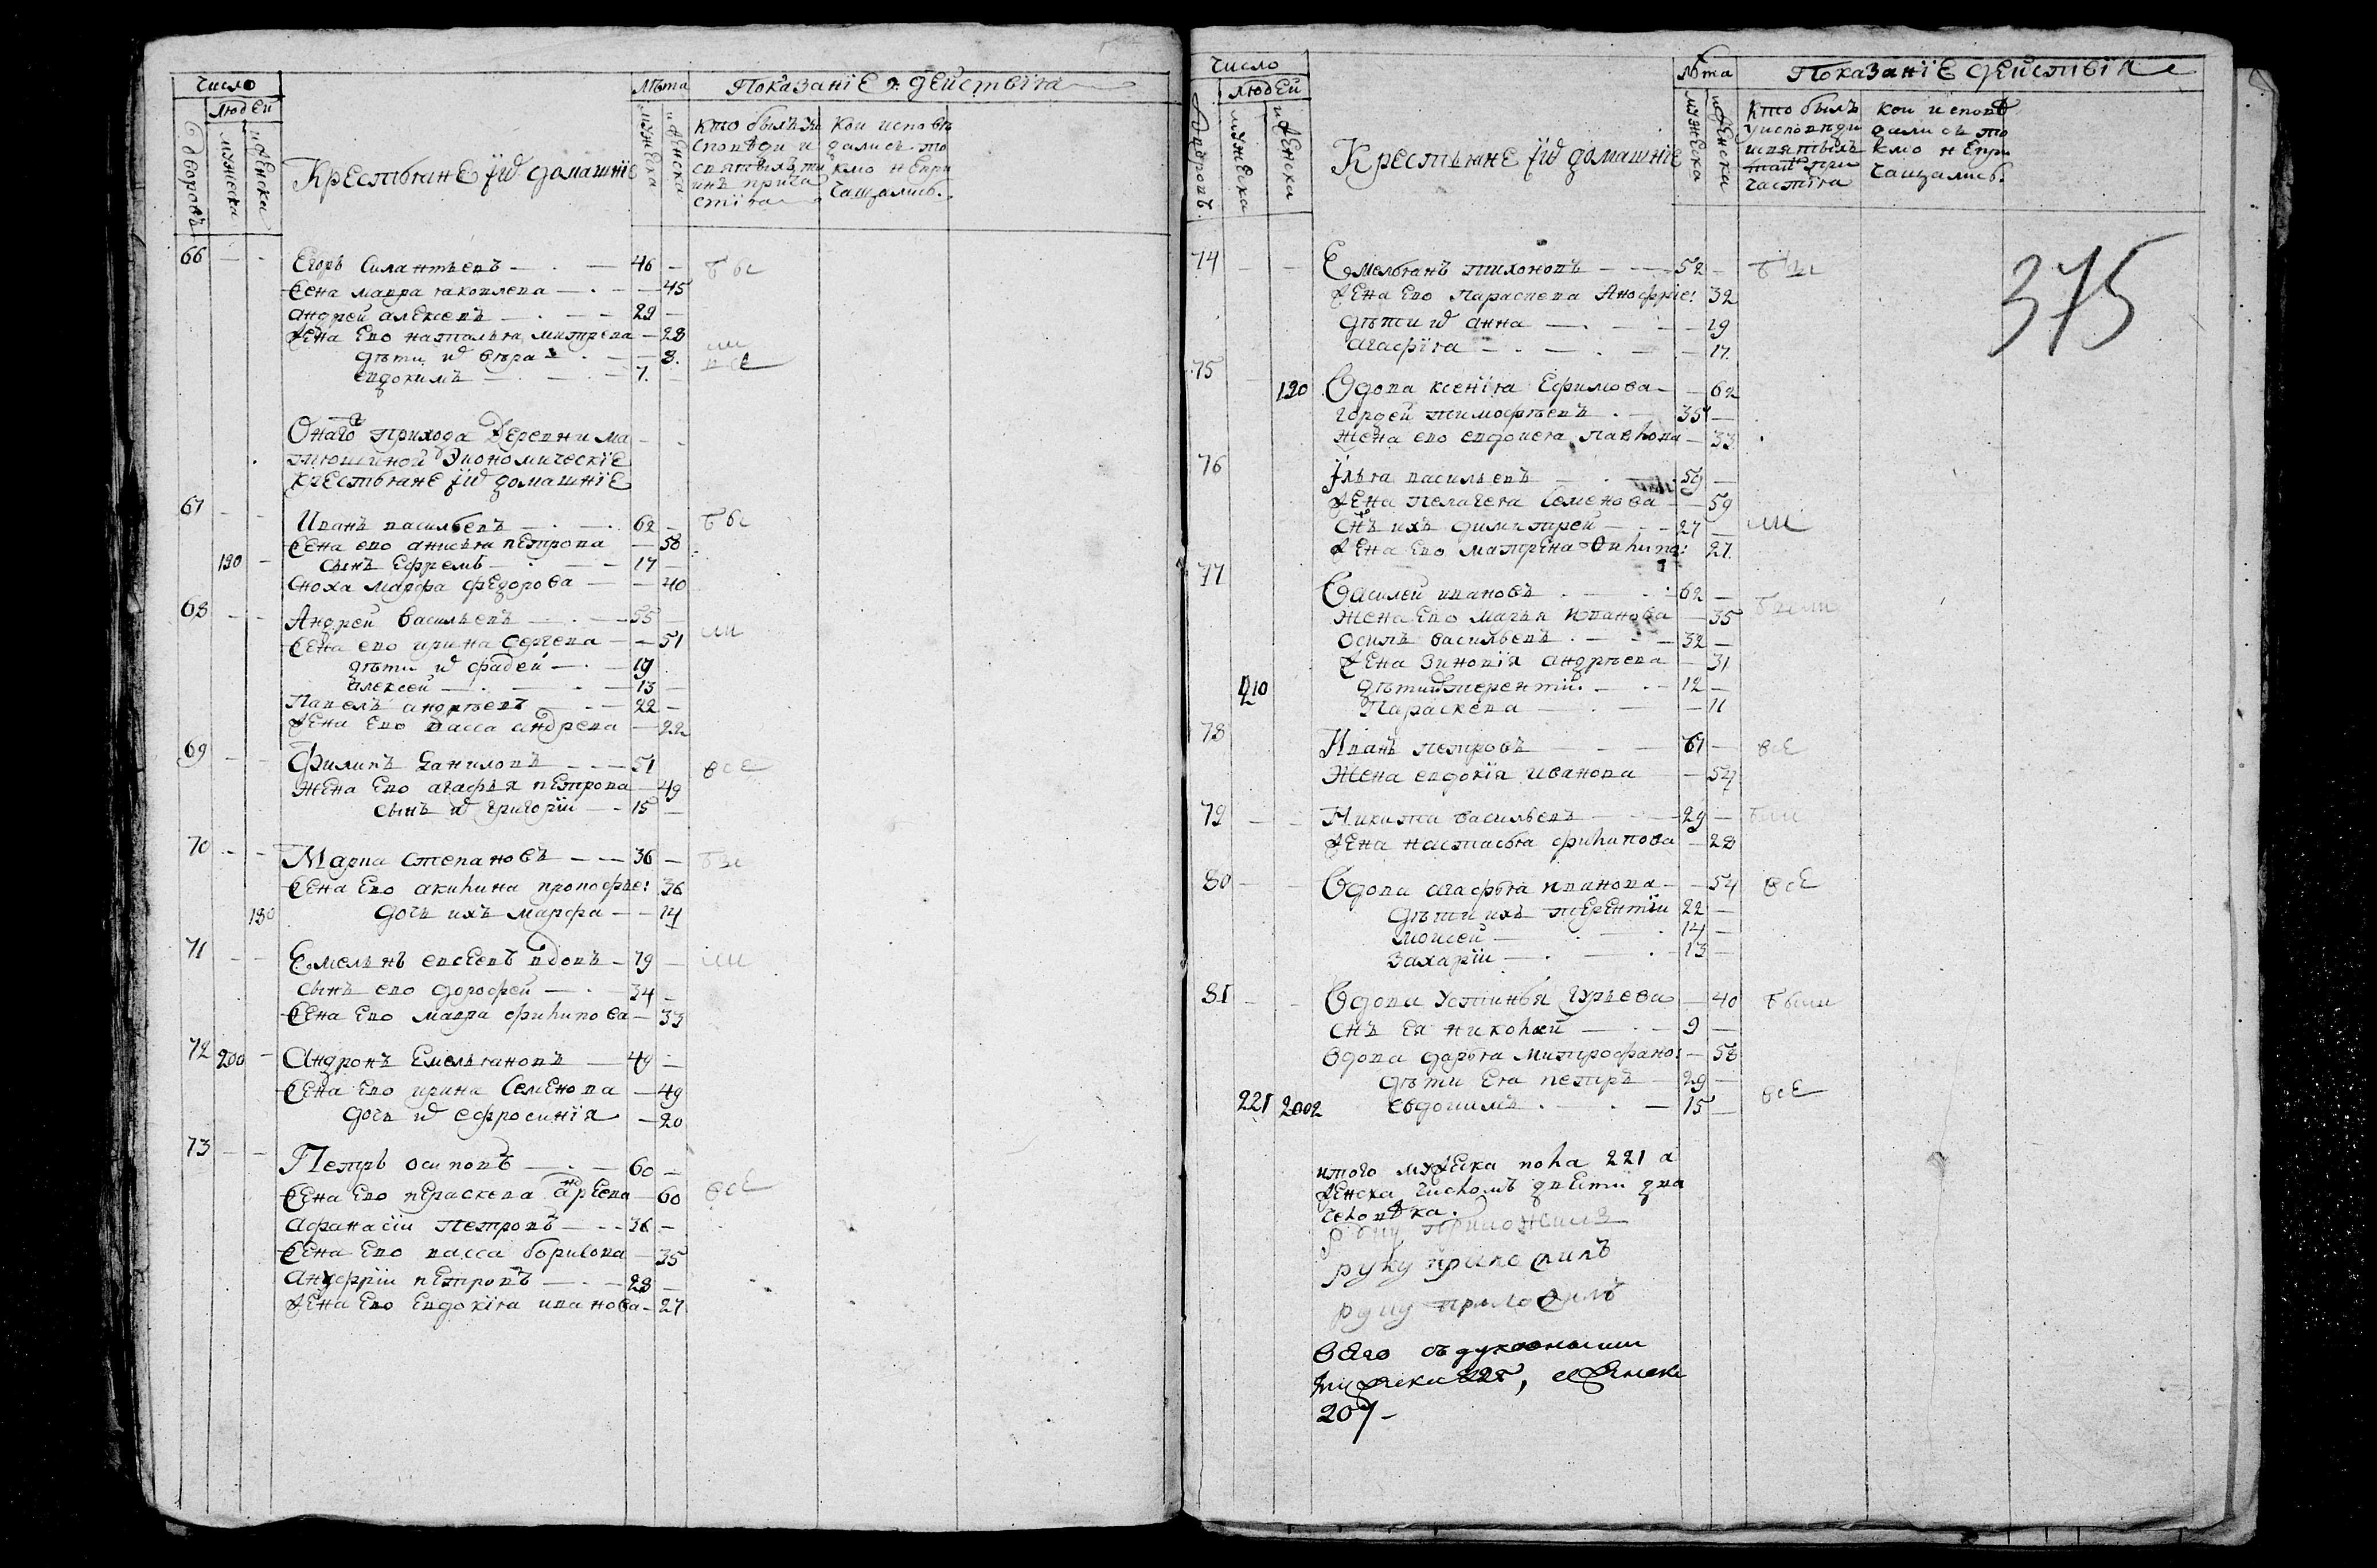 Число
Людей
дворовъ
мужеска
женска
Крестьяне ихъ домашніе
Лѣта
мужеска
женска
Показаніе дѣйствія
кто былъ у и
споведи и
святыхъ та
инъ прича
стія
кои испове
дались то
кмо непри
чащались.
66 — — Егоръ Силантьевъ — 46 —
жена мавра яковлева — 45
андрей алексевъ — 29 —
жена ево наталья митрева — 28
дѣти их вѣра — 8.
евдокимъ — 7. —
все
Онаго прихода деревни ма
тюшиной Экономическіе
крестьяне ихъ домашніе
67 — — Иванъ васильевъ — 62 —
жена ево анисья петрова — 58
190 — сынъ Ефремъ — 17 —
сноха марфа федорова — 40
68 — — Андрей васильевъ — 55 —
жена ево ирина сергева — 51
дѣти их фадей — 19
алексей — 13 —
Павелъ андрѣевъ — 22 —
жена ево васса андрева — 22
69 — — Филипъ Даниловъ — 51 все
жена ево агафья петрова — 49
сынъ их григорій — 15 —
70 — — Марка степановъ — 36 —
жена ево акилина прокофье: 36
180 дочь ихъ марфа — 14
71 — — Емельянъ евсеевъ вдовъ — 79 —
сынъ ево дорофей — 34 —
жена ево мавра филипова — 33
72 200 — Андронъ Емельяновъ — 49 —
жена ево ирина семенова — 49
дочь их ефросинія — 20
73 — — Петръ осиповъ — 60 —
жена ево пераскева андреева — 60 все
афанасіи петровъ — 36 —
жена ево васса борисова — 35
ануфріи петровъ — 28 —
жена ево евдокія иванова — 27
Число
Людей
дворовъ
мужеска
женска
Крестьяне ихъ домашніе
Лѣта
мужеска
женска
Показаніе дѣйствія
кто былъ
у исповѣди
и святыхъ
таинъ при
частія
кои исповѣ
дались то
кмо непри
чащались.
375
74 — — Емельянъ тихоновъ — 52 —
жена ево параскева Анофрие: 32
дѣти их анна — 19
агафія — 17.
75 190 Вдова ксенія Ефимова — 62
гордей тимофѣевъ — 35 —
жена ево евдокея павлова — 33
76 Илья васильевъ — 59 —
жена пелагея семенова — 59
снъ ихъ димитрей — 27 —
жена ево матрена филипа: 27.
77 Василей ивановъ — 62 —
жена ево марья иванова — 35
осипъ васильевъ — 32 —
жена зиновія андрѣева — 31
210 дѣти их терентій — 12 —
Параскева — 11
78 Иванъ петровъ — 61 — все
жена евдокія иванова — 54
79 — — Никита васильевъ — 29 —
жена настасья филипова — 28
80 — — Вдова агафья иванова — 54 все
дѣти ихъ терентіи 22 —
моисей — 14 —
захаріи — 13 —
81 — — Вдова устинья гурьева — 40 были
снъ ея николай — 9 —
вдова дарья митрофано: — 58
дѣти ея петръ — 29 —
221 202 евдокимъ — 15 — все
итого мужеска пола 221 а
женска числомъ двести два
человѣка.
руку приложилъ
руку приложилъ
руку приложилъ
всего съ духовными
мужеска 225, а женска
207 —